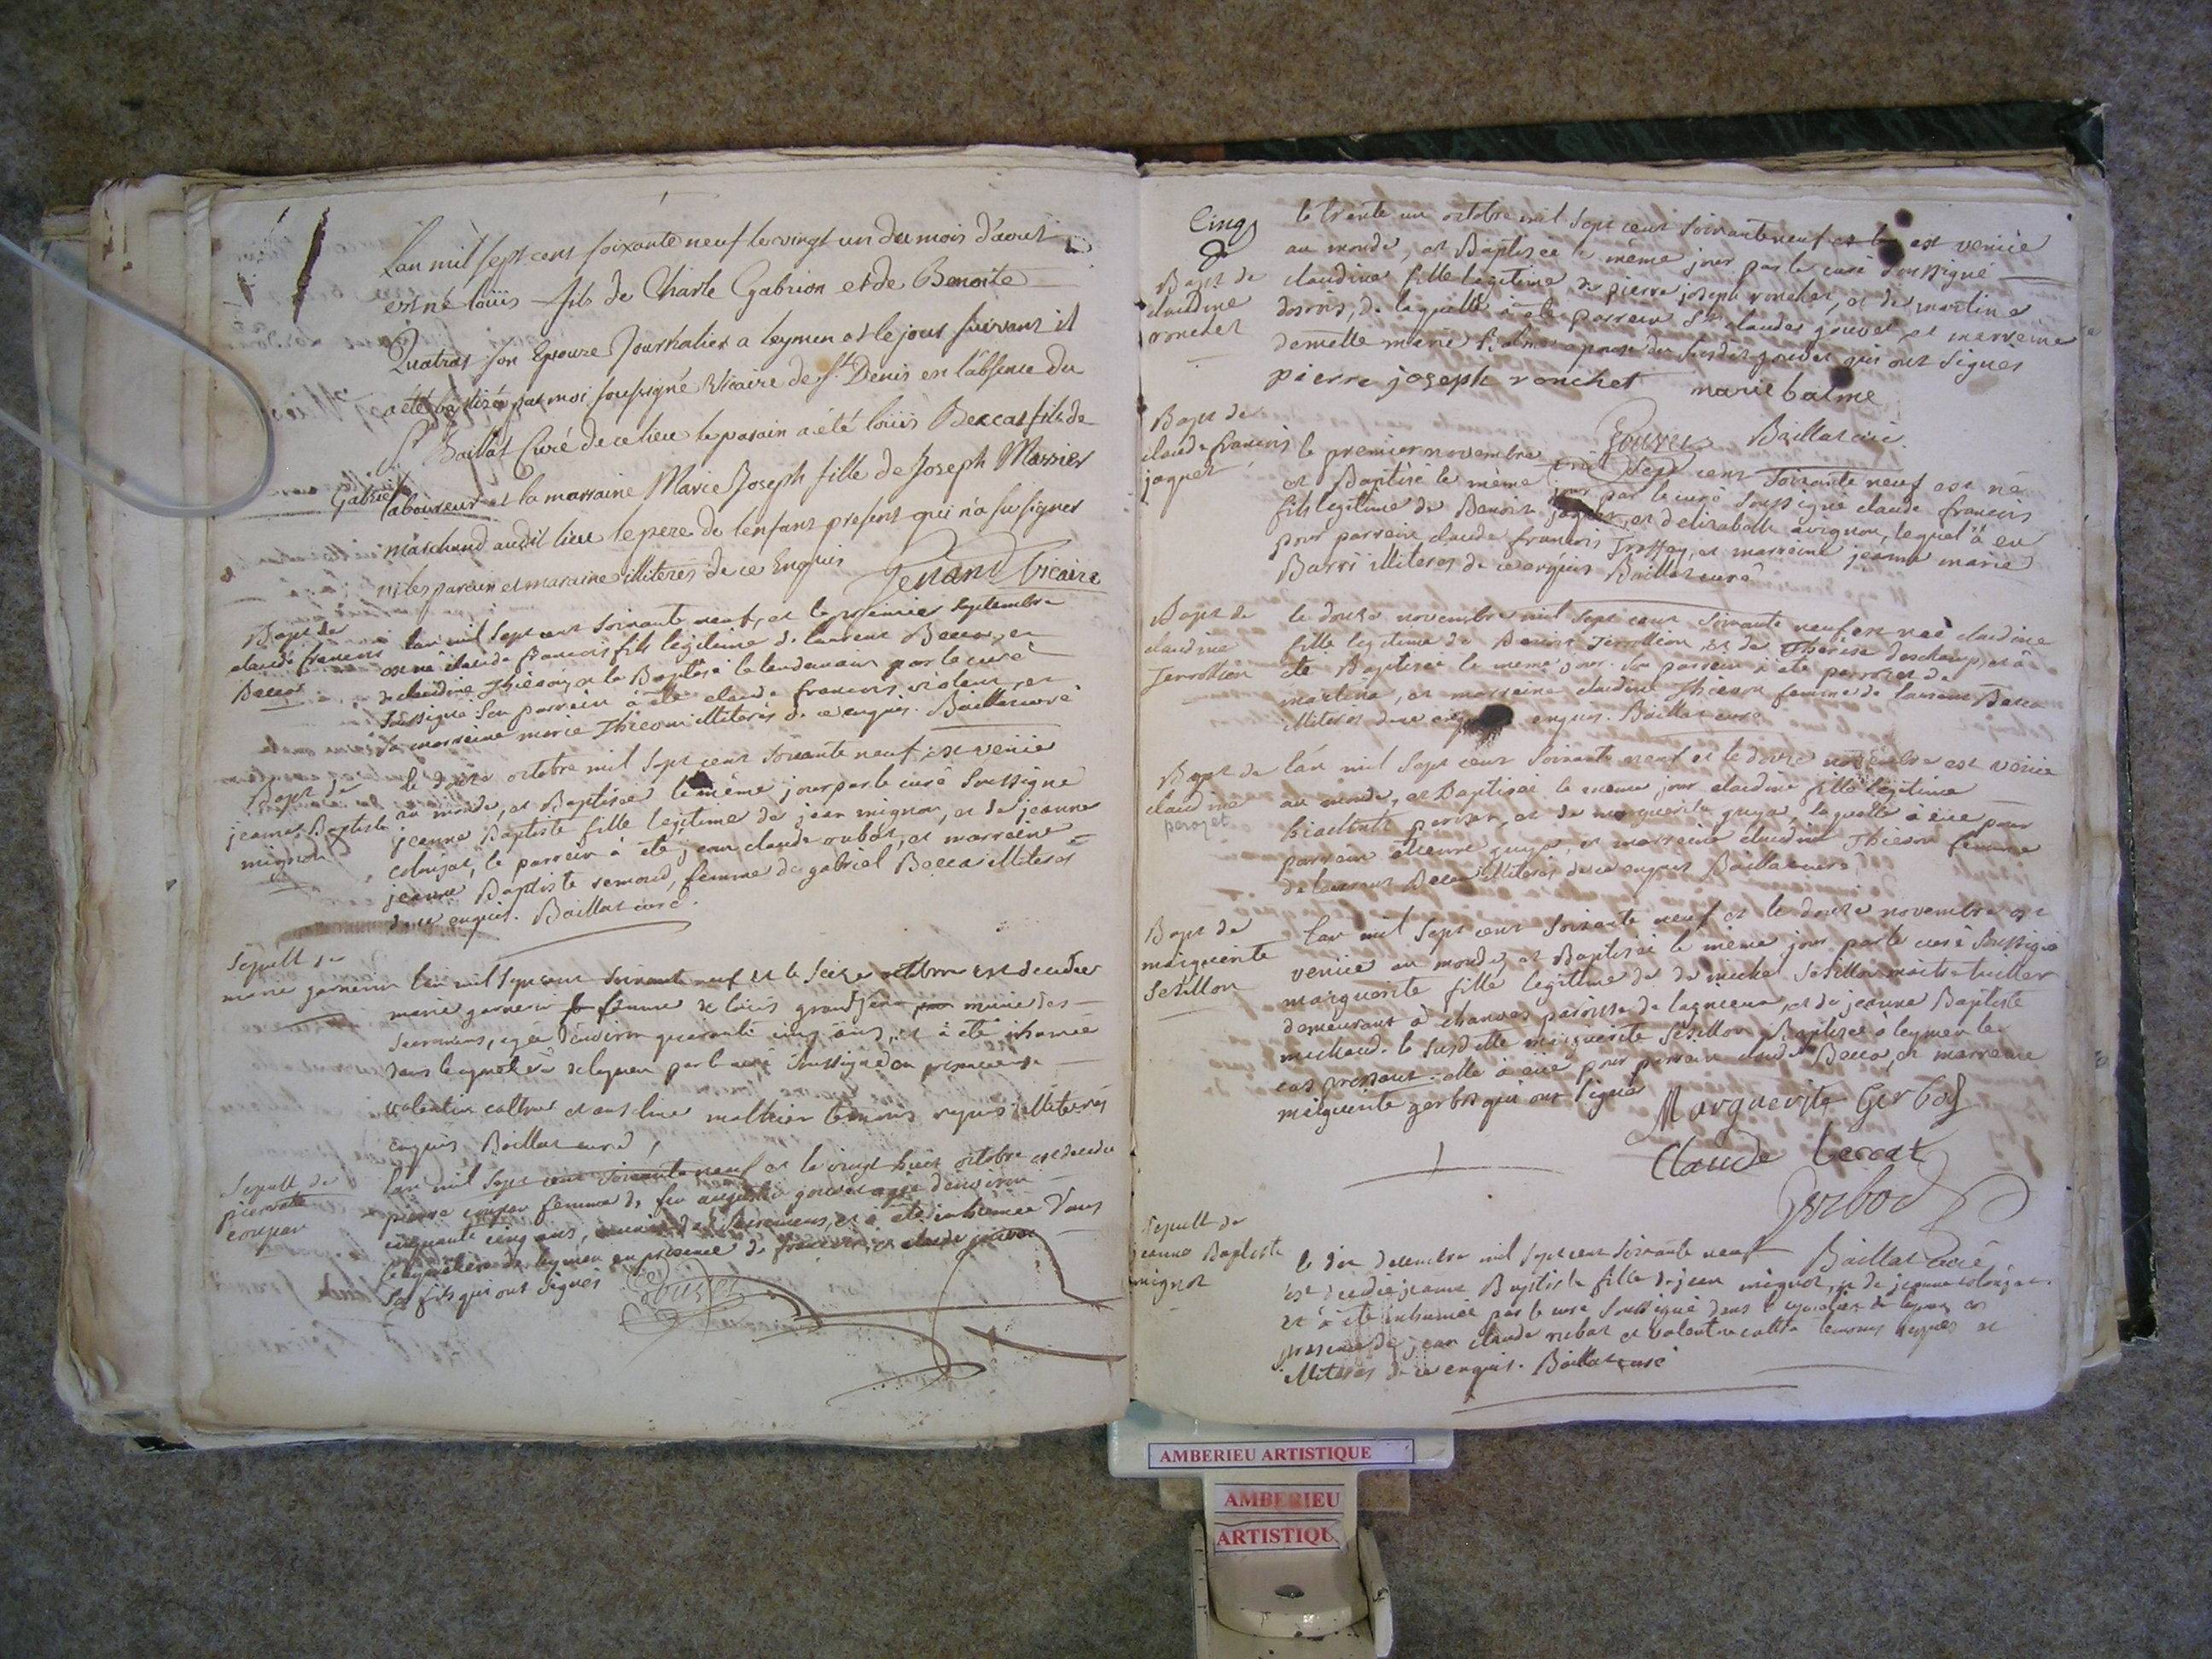 Lan mil sept cent soixante neuf le vingt un du mois d'aout
est né loüis fils de Charle Gabrion et de Benoite
Quatras son Epouze Journalier a leymen et le jour suivant il
a été baptisé par moi soussigné Vicaire de St Denis en l'absence du
Sr Baillat Curé de ce lieu le parain a été loüis Beccat fils de
Gabriel laboureur et la marraine Marie Joseph fille de Joseph Massier
marchand audit lieu le pere de lenfant present qui n'a su signer
ni les parain et maraine illiteres de ce Enquis
Vicaire
Bapt de
claude francois
Becca
lan mil sept cent soixante neuf, et le premier septembre
est né claude francois fils légitime de laurent Becca, et
de claudine Thiesoin, et le Baptisé le lendemain par le curé
soussigné son parrein à été claude francois et
sa marreine marie illiterés de ce enquis. Baillat curé
Bapt de
jeanne Baptiste
mignot
le douze octobre mil sept cent soixante neuf, est venüe
au monde, et Baptisée le même jour par le curé soussigné
jeanne Baptiste fille legitime de jean mignot, et de jeanne
le parrein à eté jean claude rubat, et marreine
jeanne Baptiste remond, femme de gabriel Becca illiteres
de ce enquis. Baillat curé.
Sepult de
marie garnerin
lan mil sept cent soixante neuf et le seize octobre est decedée
marie garnerin femme de loüis munie des
sacremens, agée denviron quarante cinq ans, et à été inhumée
dans le de leymen par le curé soussigné en presence de
valentin et antoine mathieu temoins requis illiterés
enquis Baillat curé
Sepult de
pierrette
lan mil sept cent soixante neuf et le vingt huit octobre est decedée
pierrette femme de feu gouvet agée denviron
cinquante cinq ans, munie des Sacremens, et à eté inhumée dans
le de leymen en presence de francois et claude gouvet
ses fils qui ont signés
Gouvet
Cinq
Bapt de
claudine
ronchet
le trente un octobre mil sept cent soixante neuf est venüe
au monde, et Baptisée le même jour par le curé soussigné
claudine fille legitime de pierre joseph ronchet, et de martine
de laquelle à eté parrein Sr claude gouvet et marreine
demelle marie Balme epouse du susdit gouvet qui ont signes
pierre joseph ronchet marie balme
Gouvet Baillat curé.
Bapt de
claude francois
jaquet
le premier novembre mil sept cent soixante neuf est né
et Baptisé le même jour par le curé soussigné claude francois
fils legitime de Benoit jaquet, et d'elizabeth avignon, lequel à eu
pour parrein claude francois et marreine jeanne marie
Barri illiteres de ce enquis Baillat curé
Bapt de
claudine
le douze novembre mil sept cent soixante neuf est née claudine
fille legitime de Benoit et de Therese deschamp, et à
eté Baptisée le meme jour. Son parrein à eté de
martine, et marreine claudine femme de laurent Becca
illiteres de ce enquis. Baillat curé
Bapt de
claudine
perozet
lan mil sept cent soixante neuf et le douze novembre est venüe
au monde, et Baptisée le meme jour claudine fille légitime
hiacinthe et de marguerite guya, laquelle à eüe pour
parrein etienne guya, et marreine claudine femme
de laurent Becca illiteres de ce enquis Baillat curé
Bapt de
marguerite
Sesillon
lan mil sept cent soixante neuf et le douze novembre est
venüe au monde, et Baptisée le même jour par le curé soussigné
marguerite fille legitime de de michel Sesillon
demeurant à chanves paroisse de lagnieux, et de jeanne Baptiste
michaud. la susditte marguerite Sesillon Baptisée à leymen le
cas pressant. elle à eüe pour parrein claude Becca, et marreine
marguerite gerbot qui ont signés Marguerite Gerbod
Claude beccat
Gerbod
Sepult de
jeanne Baptiste
mignot
Baillat curé
le dix decembre mil sept cent soixante neuf
est decedée jeanne Baptiste fille de jean mignot, et de jeanne
et à eté inhumée par le curé soussigné dans le de leymen en
presence de jean claude rubat et valentin temoins requis et
illiteres de ce enquis. Baillat curé
AMBERIEU ARTISTIQUE
AMBERIEU
ARTISTIQU